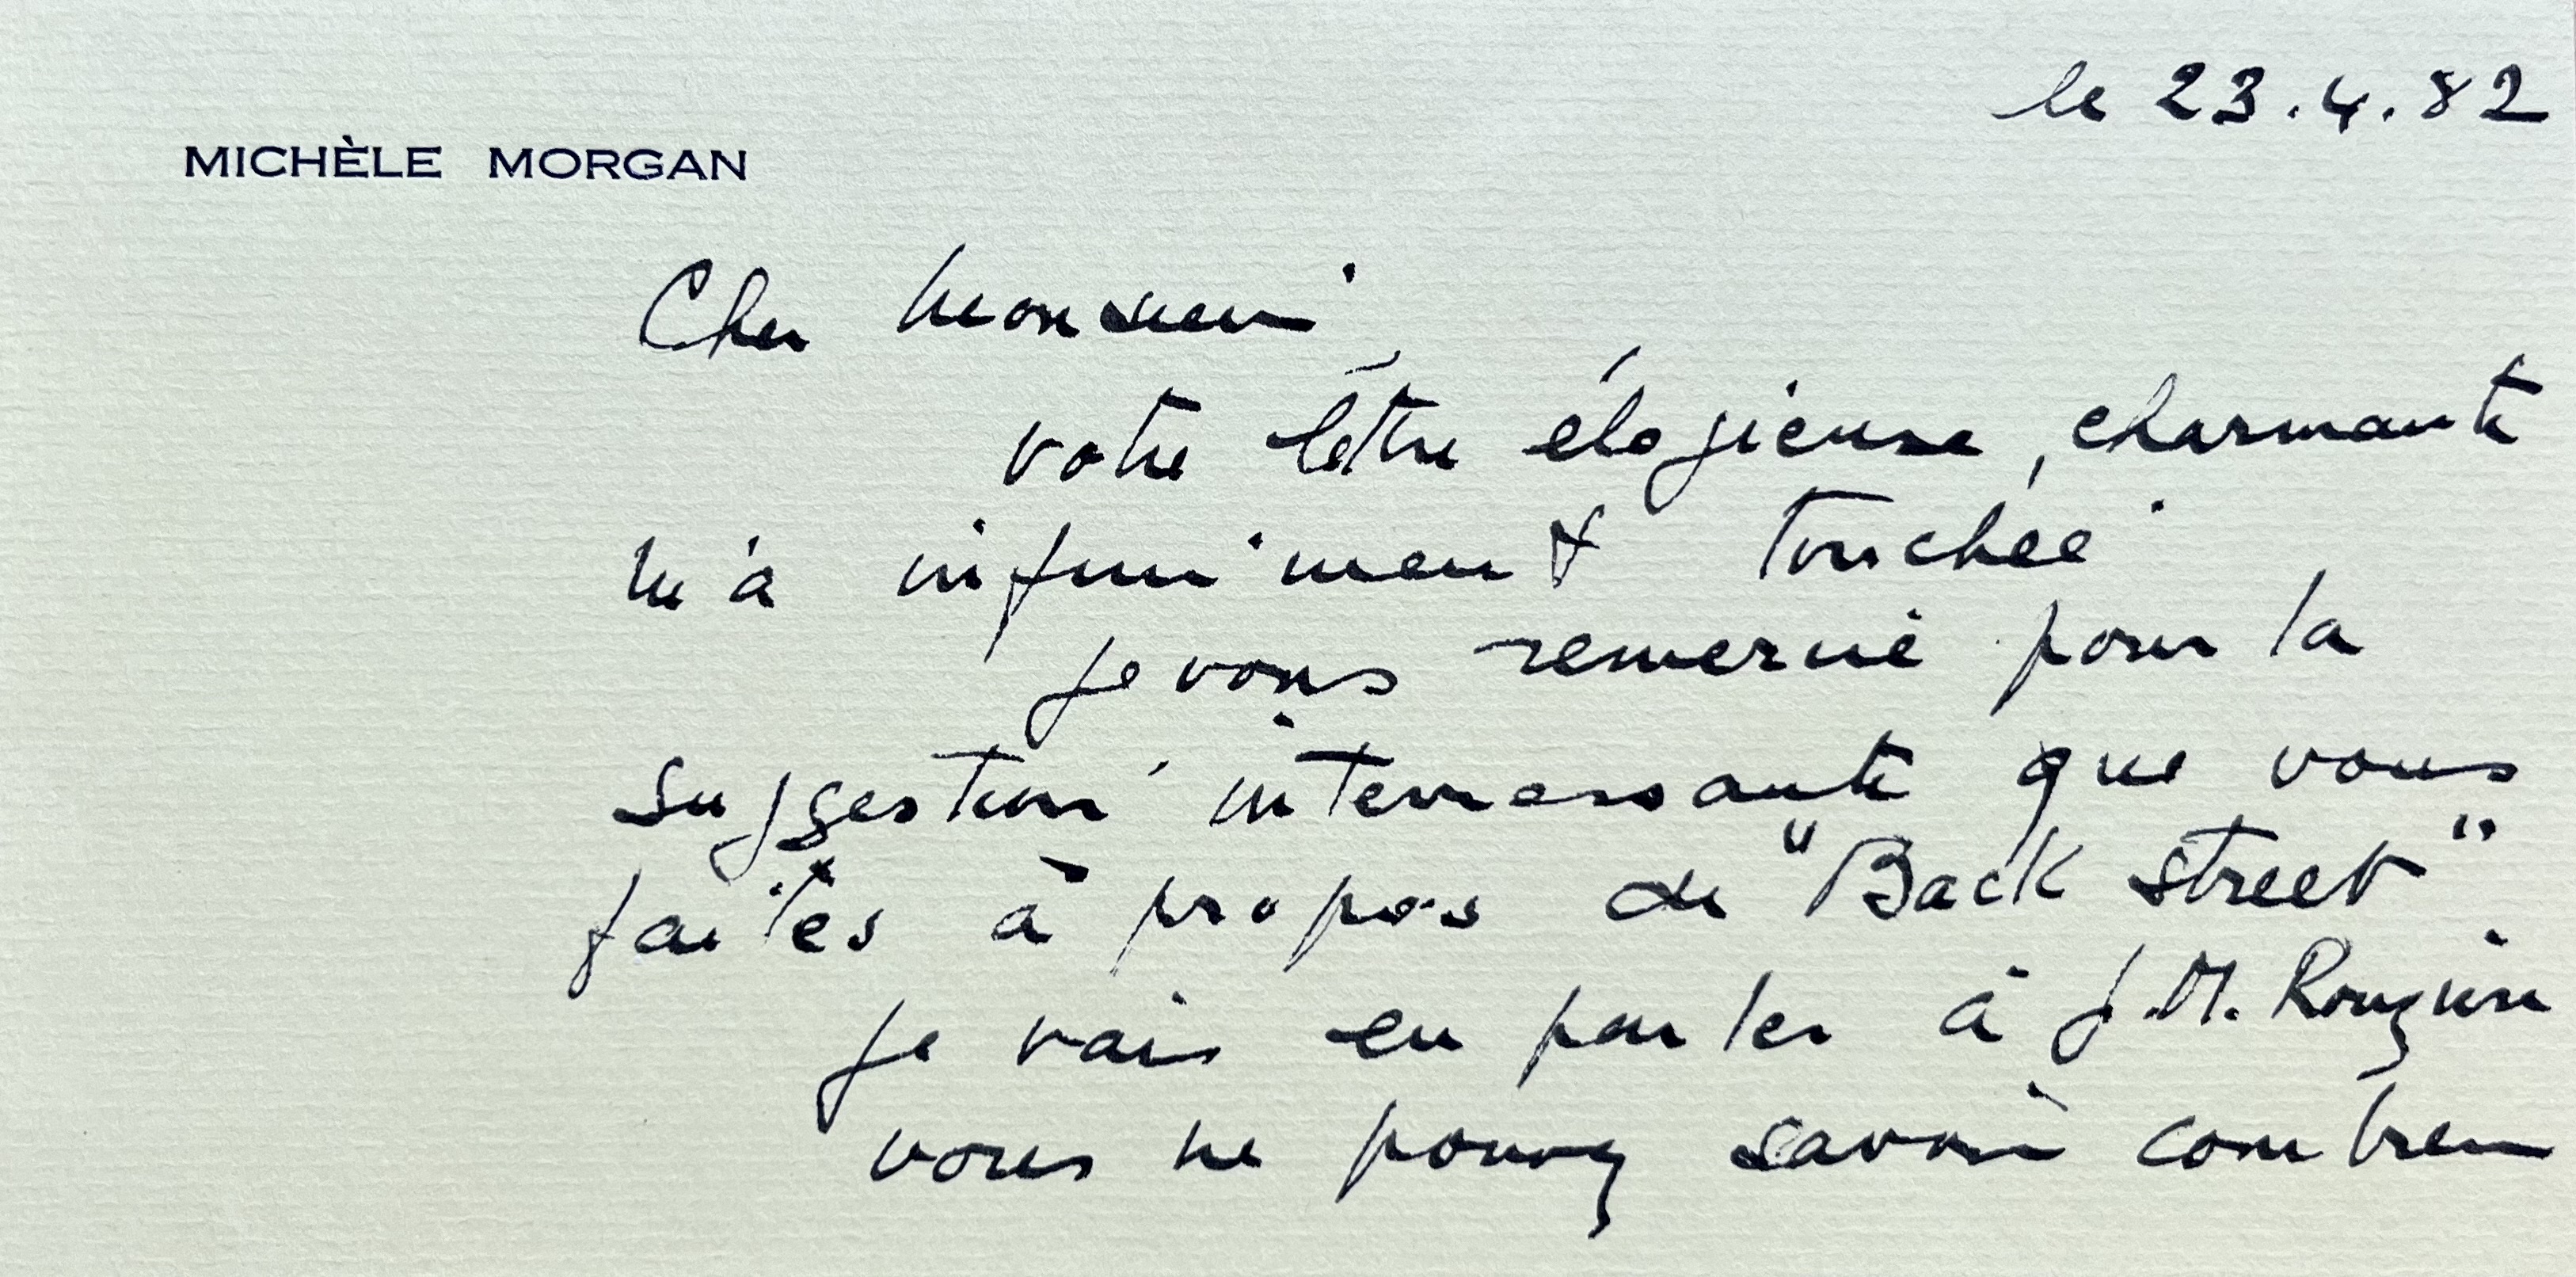 le 23.4.82
MICHÈLE MORGAN
Cher Monsieur
votre lettre élogieuse, charmante
m'a infiniment touchée
je vous remercie pour la
suggestion interressante que vous
faites à propos de "Back street"
je vais en parler à J.M. Rouzière
vous ne pouvez savoir combien